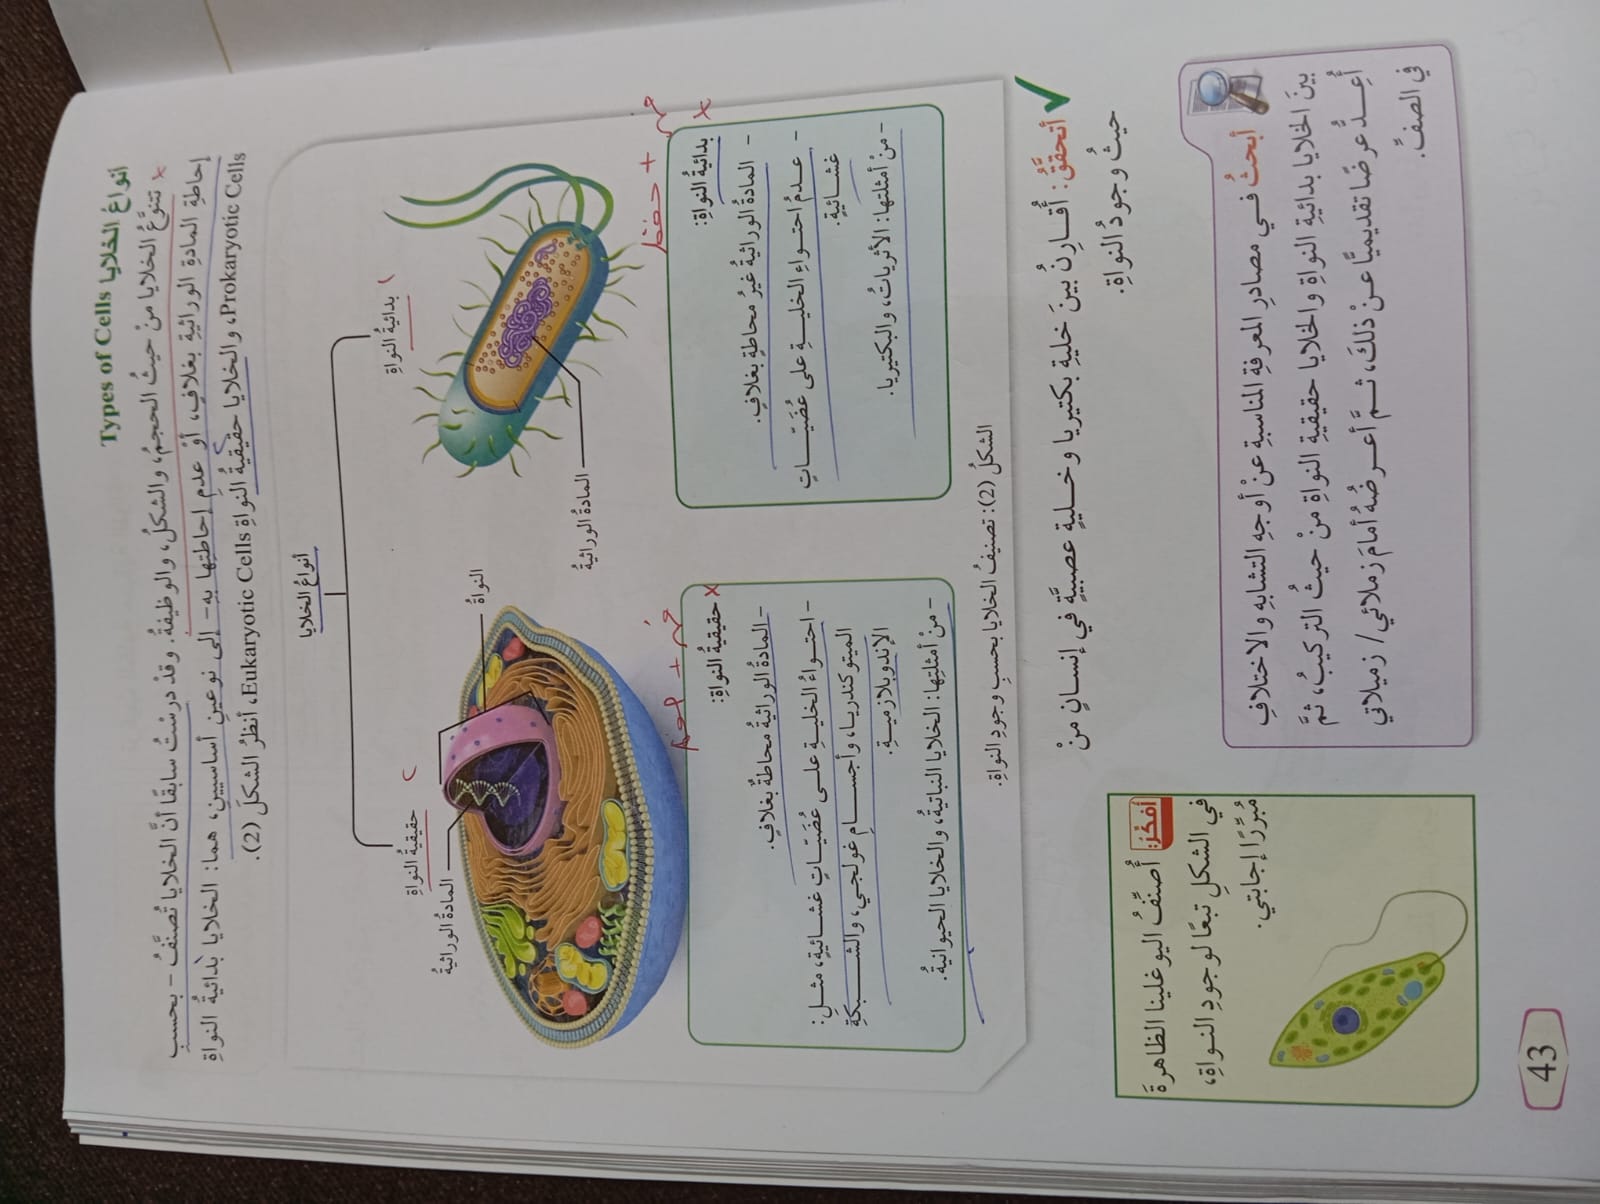 أنواعُ الخلايا Types of Cells
تتنوَّعُ الخلايا منْ حيثُ الحجمُ، والشكلُ، والوظيفةُ. وقدْ درسْتُ سابقًا أنَّ الخلايا تُصنَّفُ - بحسبِ
إحاطةِ المادةِ الوراثيةِ بغلافٍ، أوْ عدمِ إحاطتِها بهِ - إلى نوعينِ أساسيينِ، هما: الخلايا بدائيةُ النواةِ
Prokaryotic Cells، والخلايا حقيقيةُ النواةِ Eukaryotic Cells، أنظرُ الشكلَ (2).
أنواعُ الخلايا
بدائيةُ النواةِ
حقيقيةُ النواةِ
المادةُ الوراثيةُ
النواةُ
المادةُ الوراثيةُ
فهم + حفظ
بدائيةُ النواةِ:
- المادةُ الوراثيةُ غيرُ محاطةٍ بغلافٍ.
- عدمُ احتواءِ الخليةِ على عُضَيّاتٍ
غشائيةٍ.
- منْ أمثلتِها: الأثرياتُ، والبكتيريا.
فهم + حفظ
حقيقيةُ النواةِ:
- المادةُ الوراثيةُ محاطةٌ بغلافٍ.
- احتواءُ الخليةِ على عُضَيّاتٍ غشائيةٍ، مثلِ:
الميتوكندريا، وأجسامِ غولجي، والشبكةِ
الإندوبلازميةِ.
- منْ أمثلتِها: الخلايا النباتيةُ، والخلايا الحيوانيةُ.
الشكلُ (2): تصنيفُ الخلايا بحسبِ وجودِ النواةِ.
✓ أتحقَّقُ: أُقارِنُ بينَ خليةِ بكتيريا وخليةٍ عصبيَّةٍ في إنسانٍ منْ
حيثُ وجودُ النواةِ.
أبحثُ في مصادرِ المعرفةِ المناسبةِ عنْ أوجهِ التشابهِ والاختلافِ
بينَ الخلايا بدائيةِ النواةِ والخلايا حقيقيةِ النواةِ منْ حيثُ التركيبُ، ثمَّ
أُعِدُّ عرضًا تقديميًّا عنْ ذلكَ، ثمَّ أعرضُهُ أمامَ زملائي/ زميلاتي
في الصفِّ.
أفكِّرُ: أُصنِّفُ اليوغلينا الظاهرةَ
في الشكلِ تبعًا لوجودِ النواةِ،
مُبرِّرًا إجابتي.
43